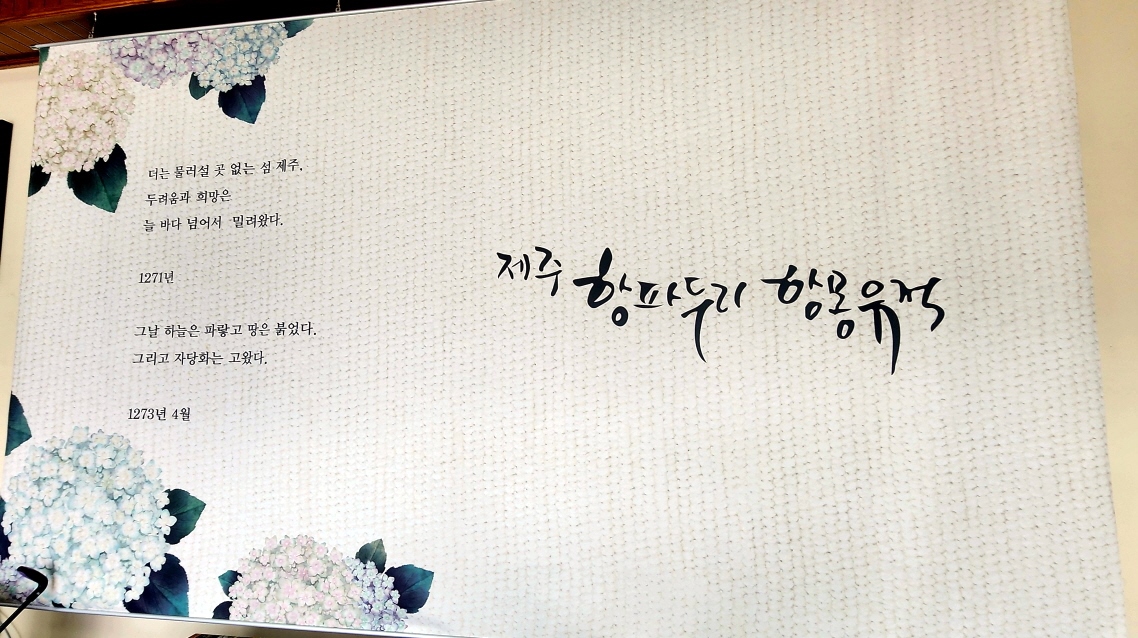 더는 물러설 곳 없는 섬 제주,
두려움과 희망은
늘 바다 넘어서 밀려왔다.
1271년
그날 하늘은 파랗고 땅은 붉었다.
그리고 자당화는 고왔다.
1273년 4월
제주 항파두리 항몽유적